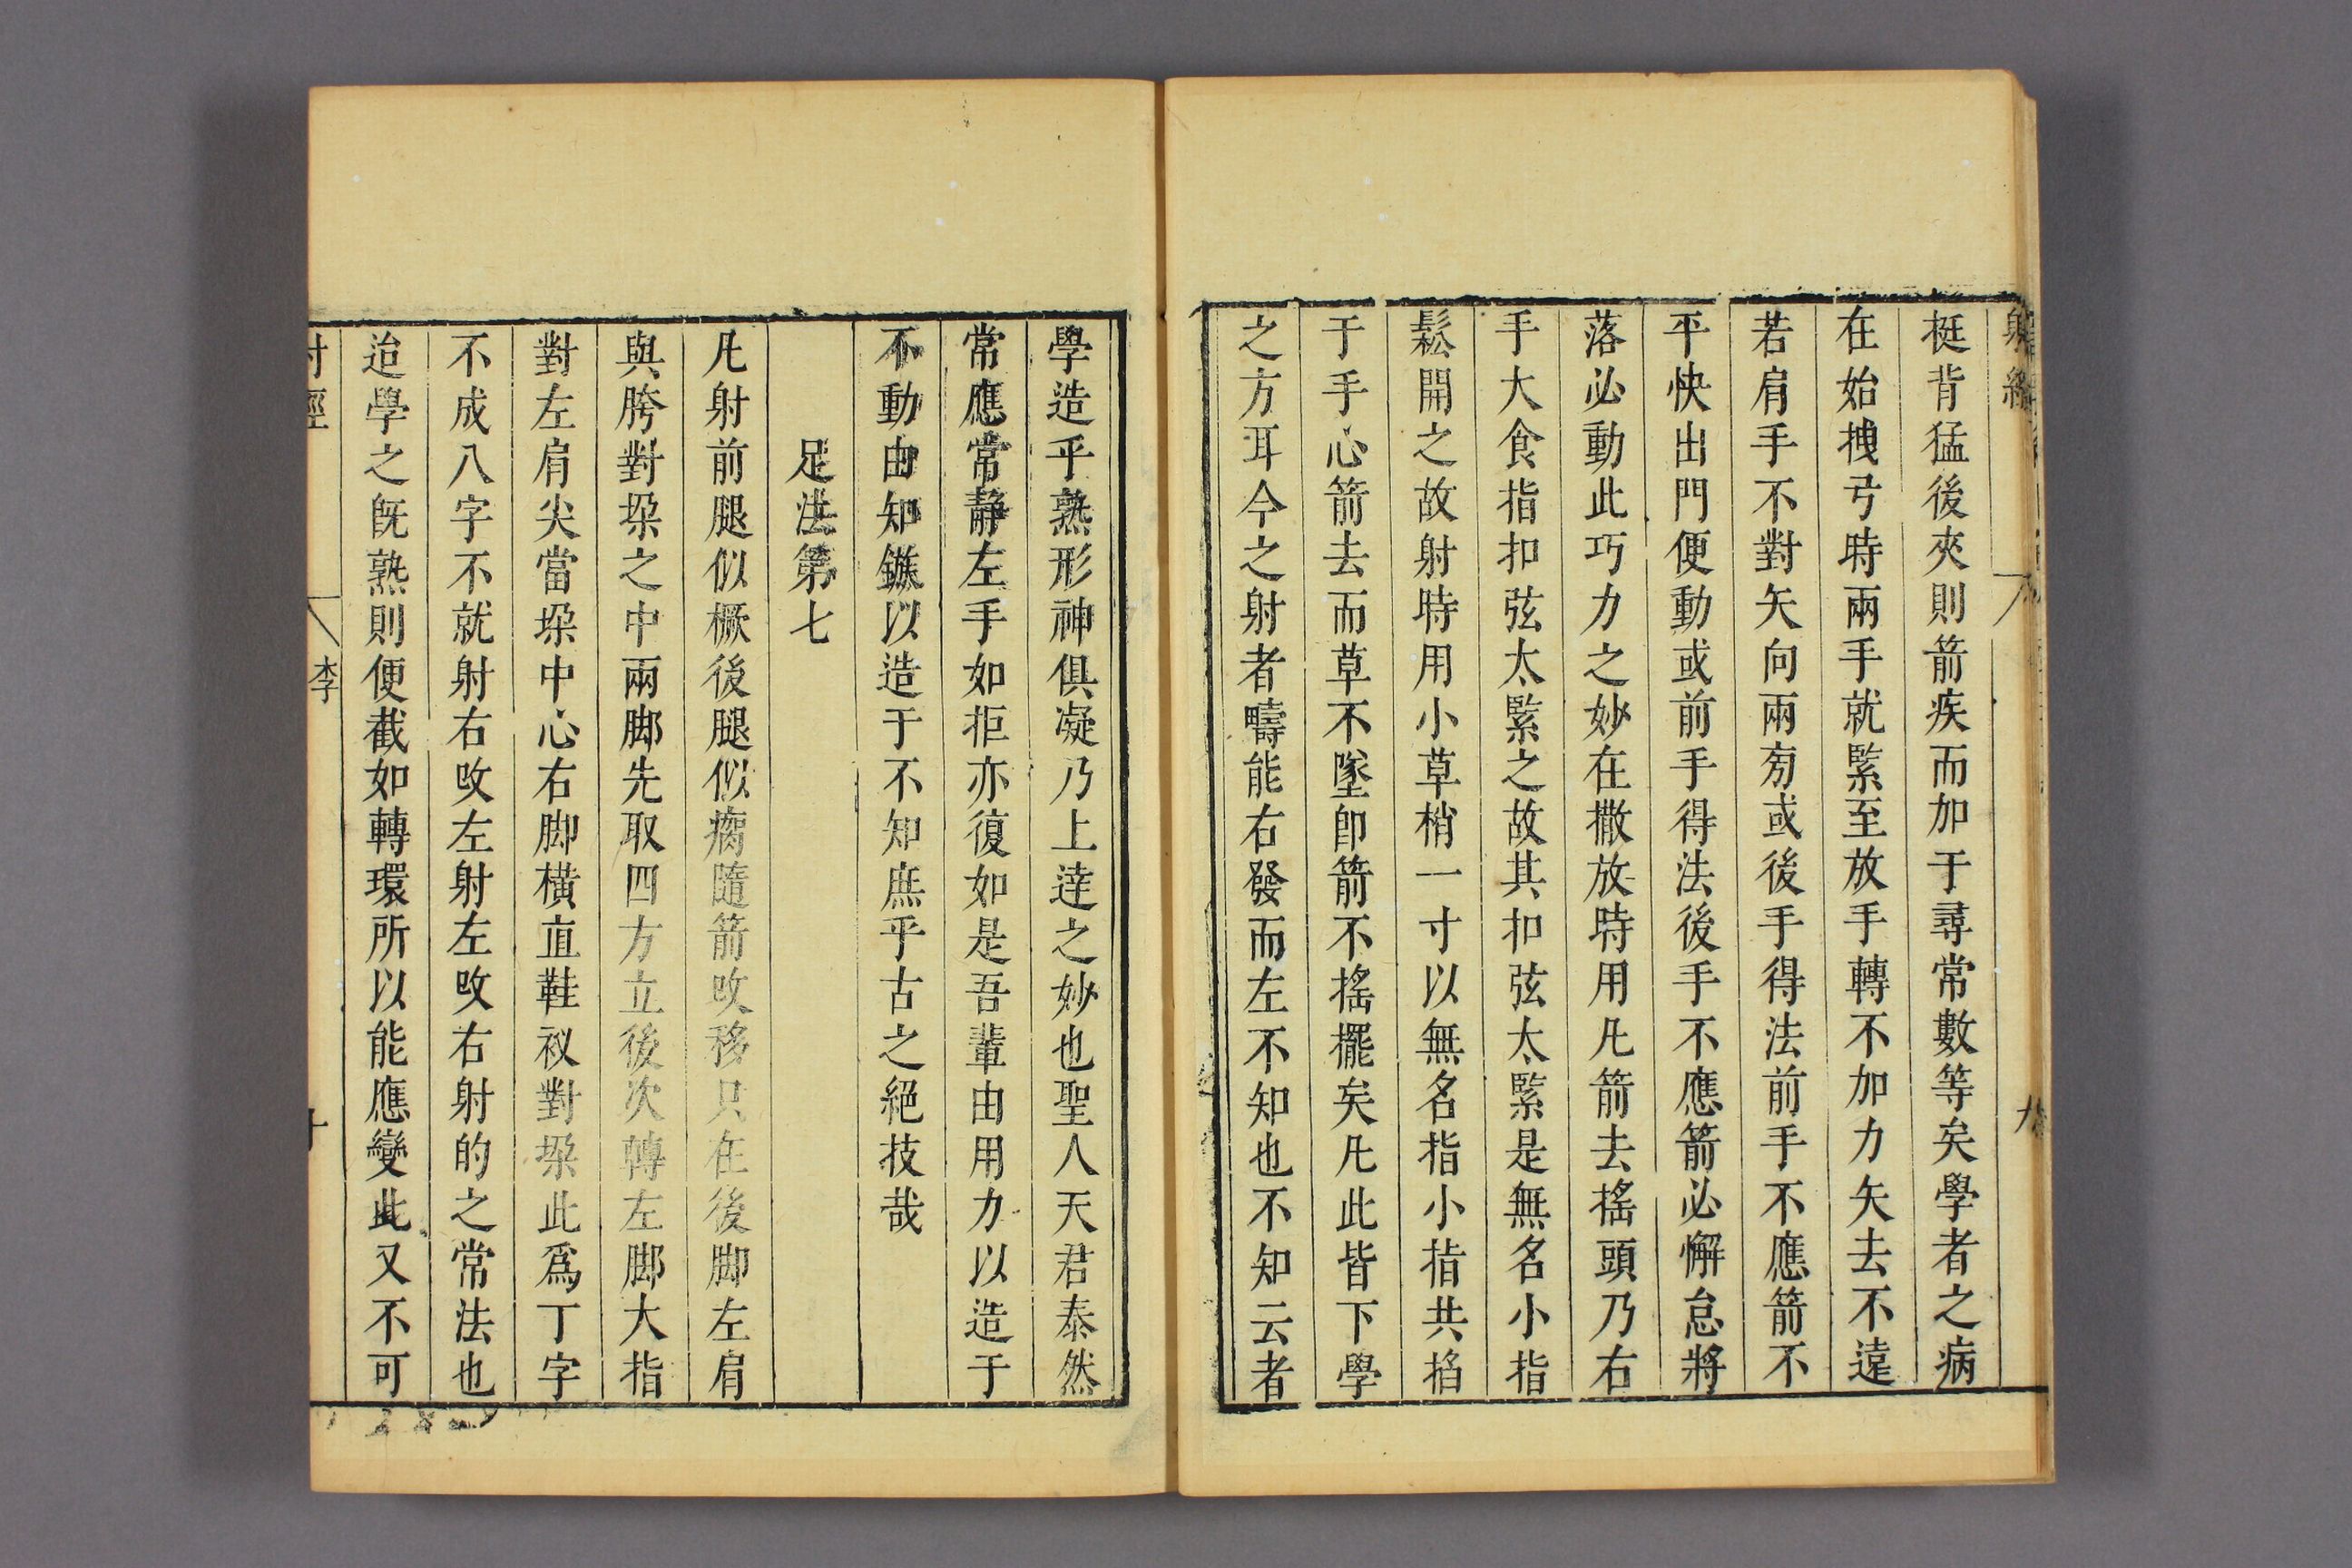 射經
九
挺背猛後夾則箭疾而加于尋常數等矣學者之病
在始拽弓時兩手就緊至放手轉不加力矢去不遠
若肩手不對矢向兩旁或後手得法前手不應箭不
平快出門便動或前手得法後手不應箭必懈怠將
落必動此巧力之妙在撒放時用凡箭去搖頭乃右
手大食指扣弦太緊之故其扣弦太緊是無名小指
鬆開之故射時用小草梢一寸以無名指小指共掐
于手心箭去而草不墜卽箭不搖擺矣凡此皆下學
之方耳今之射者疇能右發而左不知也不知云者
學造乎熟形神俱凝乃上達之妙也聖人天君泰然
常應常靜左手如拒亦復如是吾輩由用力以造于
不動由知鏃以造于不知庶乎古之絕技哉
足法第七
凡射前腿似橛後腿似瘸隨箭攺移只在後脚左肩
與胯對垛之中兩脚先取四方立後次轉左脚大指
對左肩尖當垛中心右脚橫直鞋衩對垛此爲丁字
不成八字不就射右攺左射左攺右射的之常法也
迨學之旣熟則便截如轉環所以能應變此又不可
射經
李
十